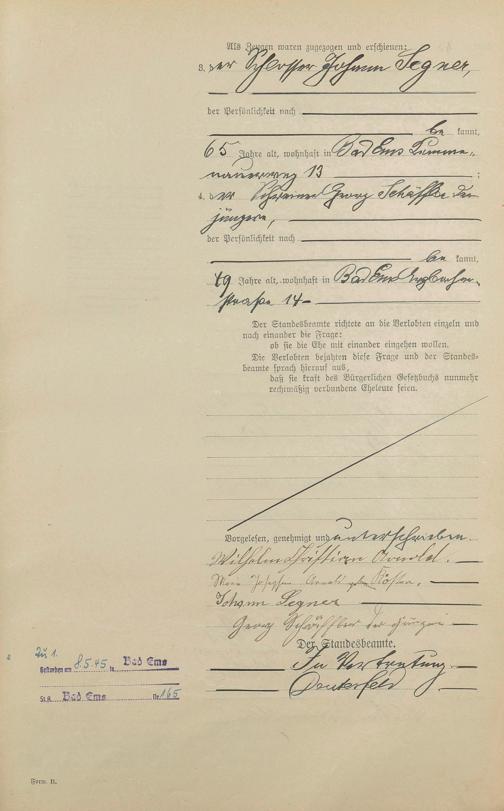 Als Zeugen waren zugezogen und erschienen:
3. der Schlosser Johann Segner,
der Persönlichkeit nach
be kannt,
65 Jahre alt, wohnhaft in Bad Ems
nauerweg 13 ;
4. der Schreiner Georg Schäffler der
jüngere,
der Persönlichkeit nach
be kannt,
49 Jahre alt, wohnhaft in Bad Ems
straße 14
Der Standesbeamte richtete an die Verlobten einzeln und
nach einander die Frage:
ob sie die Ehe mit einander eingehen wollen.
Die Verlobten bejahten diese Frage und der Standes-
beamte sprach hierauf aus,
daß sie kraft des Bürgerlichen Gesetzbuchs nunmehr
rechtmäßig verbundene Eheleute seien.
Vorgelesen, genehmigt und unterschrieben.
Wilhelm Christian Arnold.
Josephine Arnold geb.
Johann Segner
Georg Schäffler der jüngere
Der Standesbeamte.
In Vertretung.
Zu 1.
Gestorben am 8.5.45 in Bad Ems
St.A. Bad Ems Nr. 165
Form. B.